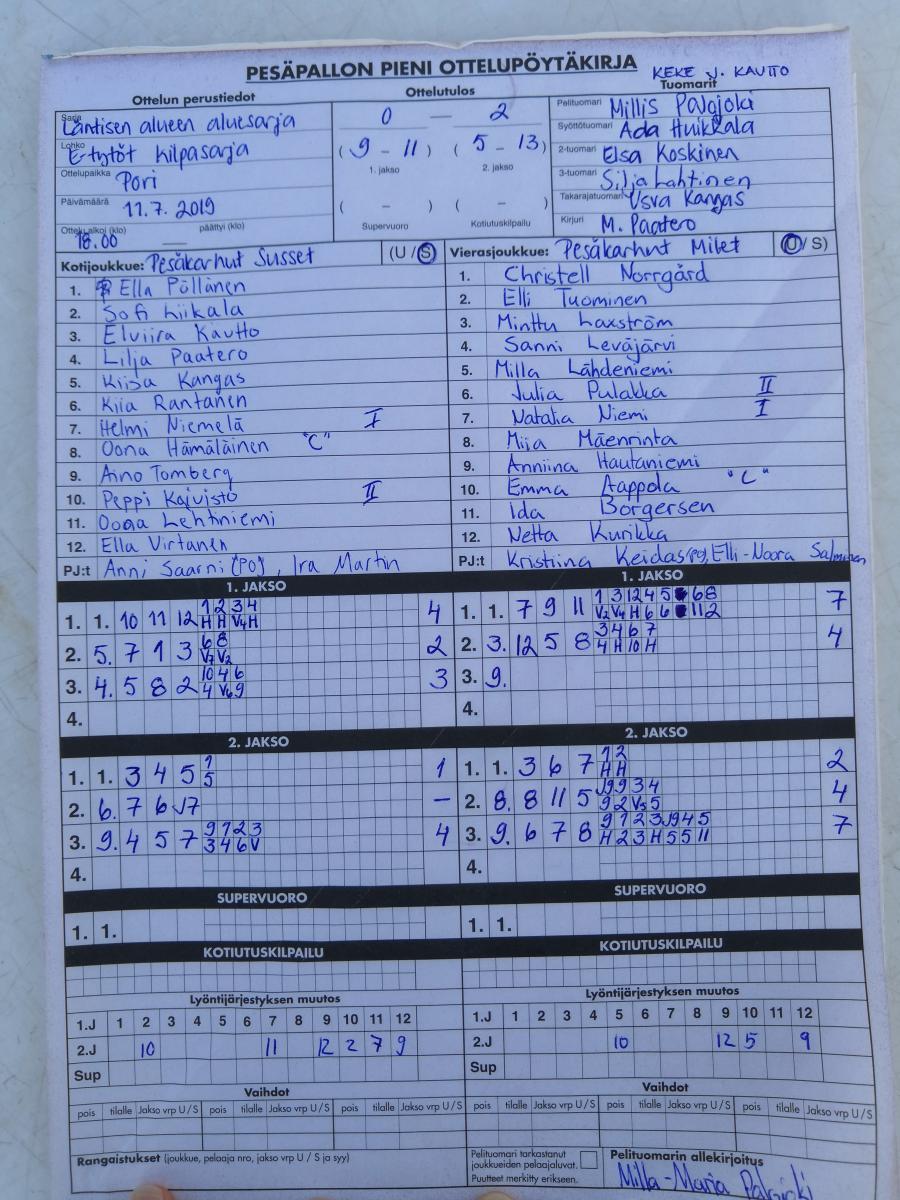 PESÄPALLON PIENI OTTELUPÖYTÄKIRJA KEKE J. KAUTTO
Ottelun perustiedot Ottelutulos Tuomarit
Sarja Läntisen alueen aluesarja
0 — 2
Pelituomari Millis Palojoki
Syöttötuomari Ada Huikkala
Lohko E-tytöt kilpasarja
(9 - 11) (5 - 13)
2-tuomari Elsa Koskinen
Ottelupaikka Pori
1. jakso 2. jakso
3-tuomari Silja Lahtinen
Päivämäärä 11.7. 2019
( - ) ( - )
Takarajatuomari Usva Kangas
Ottelu alkoi (klo) 18.00 — päättyi (klo)
Supervuoro Kotiutuskilpailu
Kirjuri M. Paatero
Kotijoukkue: Pesäkarhut Susset (U / S)
1. Ella Pöllänen
2. Sofi Liikala
3. Elviira Kautto
4. Lilja Paatero
5. Kiisa Kangas
6. Kiia Rantanen
7. Helmi Niemelä I
8. Oona Hämäläinen "C"
9. Aino Tomberg
10. Peppi Koivisto II
11. Oona Lehtiniemi
12. Ella Virtanen
PJ:t Anni Saarni (PO), Ira Martin
Vierasjoukkue: Pesäkarhut Milet (U / S)
1. Christell Norrgård
2. Elli Tuominen
3. Minttu Laxström
4. Sanni Leväjärvi
5. Milla Lähdeniemi
6. Julia Pulakka II
7. Natalia Niemi I
8. Miia Mäenrinta
9. Anniina Hautaniemi
10. Emma Aappola "C"
11. Ida Borgersen
12. Netta Kurikka
PJ:t Kristiina Keidas (PO), Elli-Noora Salminen
1. JAKSO
1. 1. 10 11 12 1 2 3 4 4
H H V4 H
2. 5. 7 1 3 6 8 2
V7 V2
3. 4. 5 8 2 10 4 6 3
4 V6 9
4.
1. JAKSO
1. 1. 7 9 11 1 3 12 4 5 6 8 7
V2 V4 H 6 6 11 2
2. 3. 12 5 8 3 4 6 7 4
4 H 10 H
3. 9.
4.
2. JAKSO
1. 1. 3 4 5 1 1
5
2. 6. 7 6 J7 —
3. 9. 4 5 7 9 1 2 3 4
3 4 6 V
4.
2. JAKSO
1. 1. 3 6 7 1 2 2
H H
2. 8. 8 11 5 J9 9 3 4 4
9 2 V3 5
3. 9. 6 7 8 9 1 2 3 J9 4 5 7
H 2 3 H 5 5 11
4.
SUPERVUORO
1. 1.
SUPERVUORO
1. 1.
KOTIUTUSKILPAILU
KOTIUTUSKILPAILU
Lyöntijärjestyksen muutos
1.J 1 2 3 4 5 6 7 8 9 10 11 12
2.J 10 11 12 2 7 9
Sup
Lyöntijärjestyksen muutos
1.J 1 2 3 4 5 6 7 8 9 10 11 12
2.J 10 12 5 9
Sup
Vaihdot
pois tilalle Jakso vrp U / S pois tilalle Jakso vrp U / S pois tilalle Jakso vrp U / S
Vaihdot
pois tilalle Jakso vrp U / S pois tilalle Jakso vrp U / S pois tilalle Jakso vrp U / S
Rangaistukset (joukkue, pelaaja nro, jakso vrp U / S ja syy)
Pelituomari tarkastanut
joukkueiden pelaajaluvat.
Puutteet merkitty erikseen.
Pelituomarin allekirjoitus
Milla-Maria